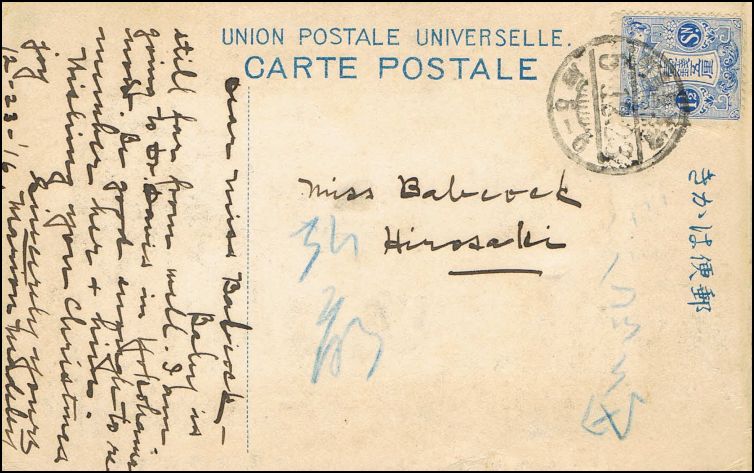 UNION POSTALE UNIVERSELLE.
CARTE POSTALE
きかは便郵
1½
Miss Babcock
Hirosaki
弘前
Dear Miss Babcock –
Baby is
still far from well. I am
going to Dr Davis in
most. Be good enough to re
member her + him.
Wishing you Christmas
joy
Sincerely yours
12-23-'16. Marion